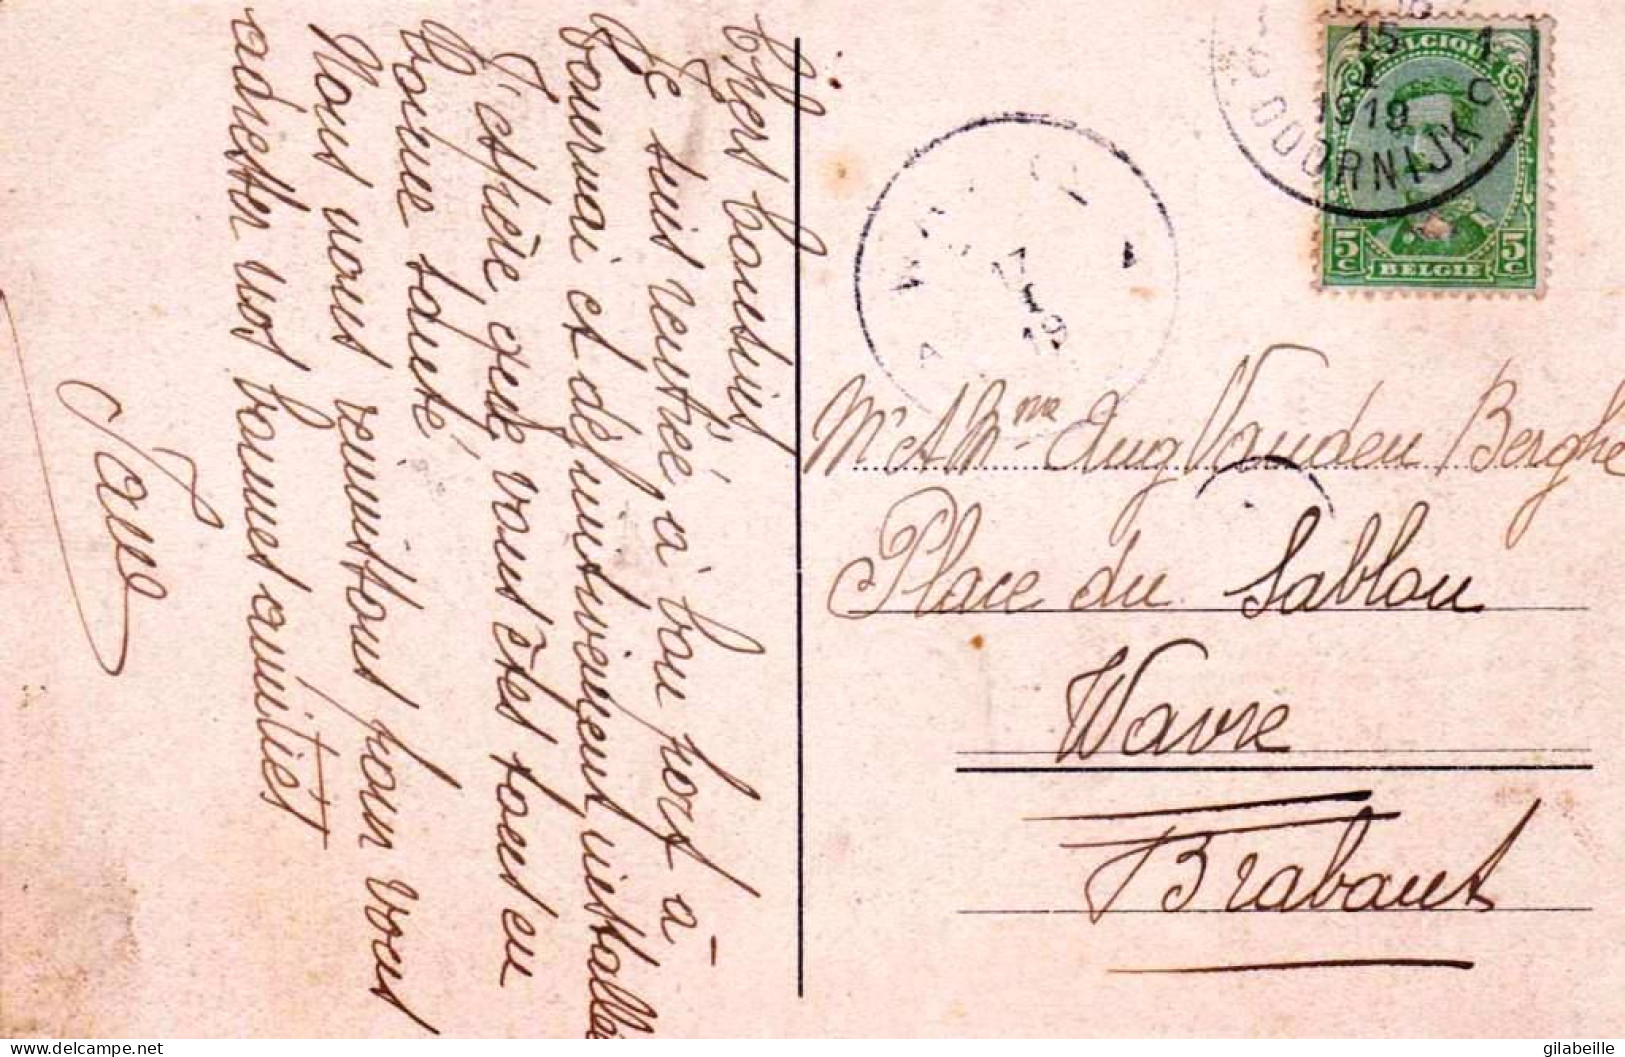 Chers Cousins
Je suis rentrée à bon port à
Tournai et définitivement installée
J'espère que vous êtes tous en
bonne santé
Nous nous remettons pour vous
adresser nos bonnes amitiés
Mr et Mme Aug Vanden Berghe
Place du Sablon
Wavre
Brabant
BELGIQUE
5c 5c
BELGIE
15 1
1919 C
DOORNIJK
17
19
delcampe.net
gilabeille